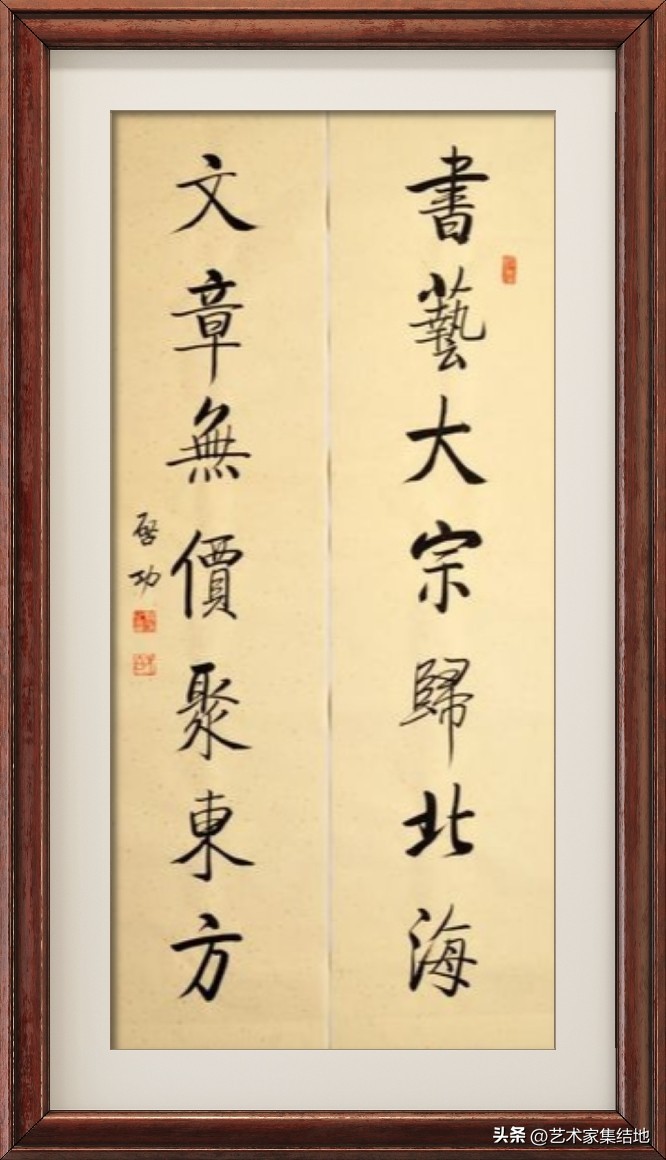 書藝大宗歸北海
文章無價聚東方
啓功
头条 @艺术家集结地